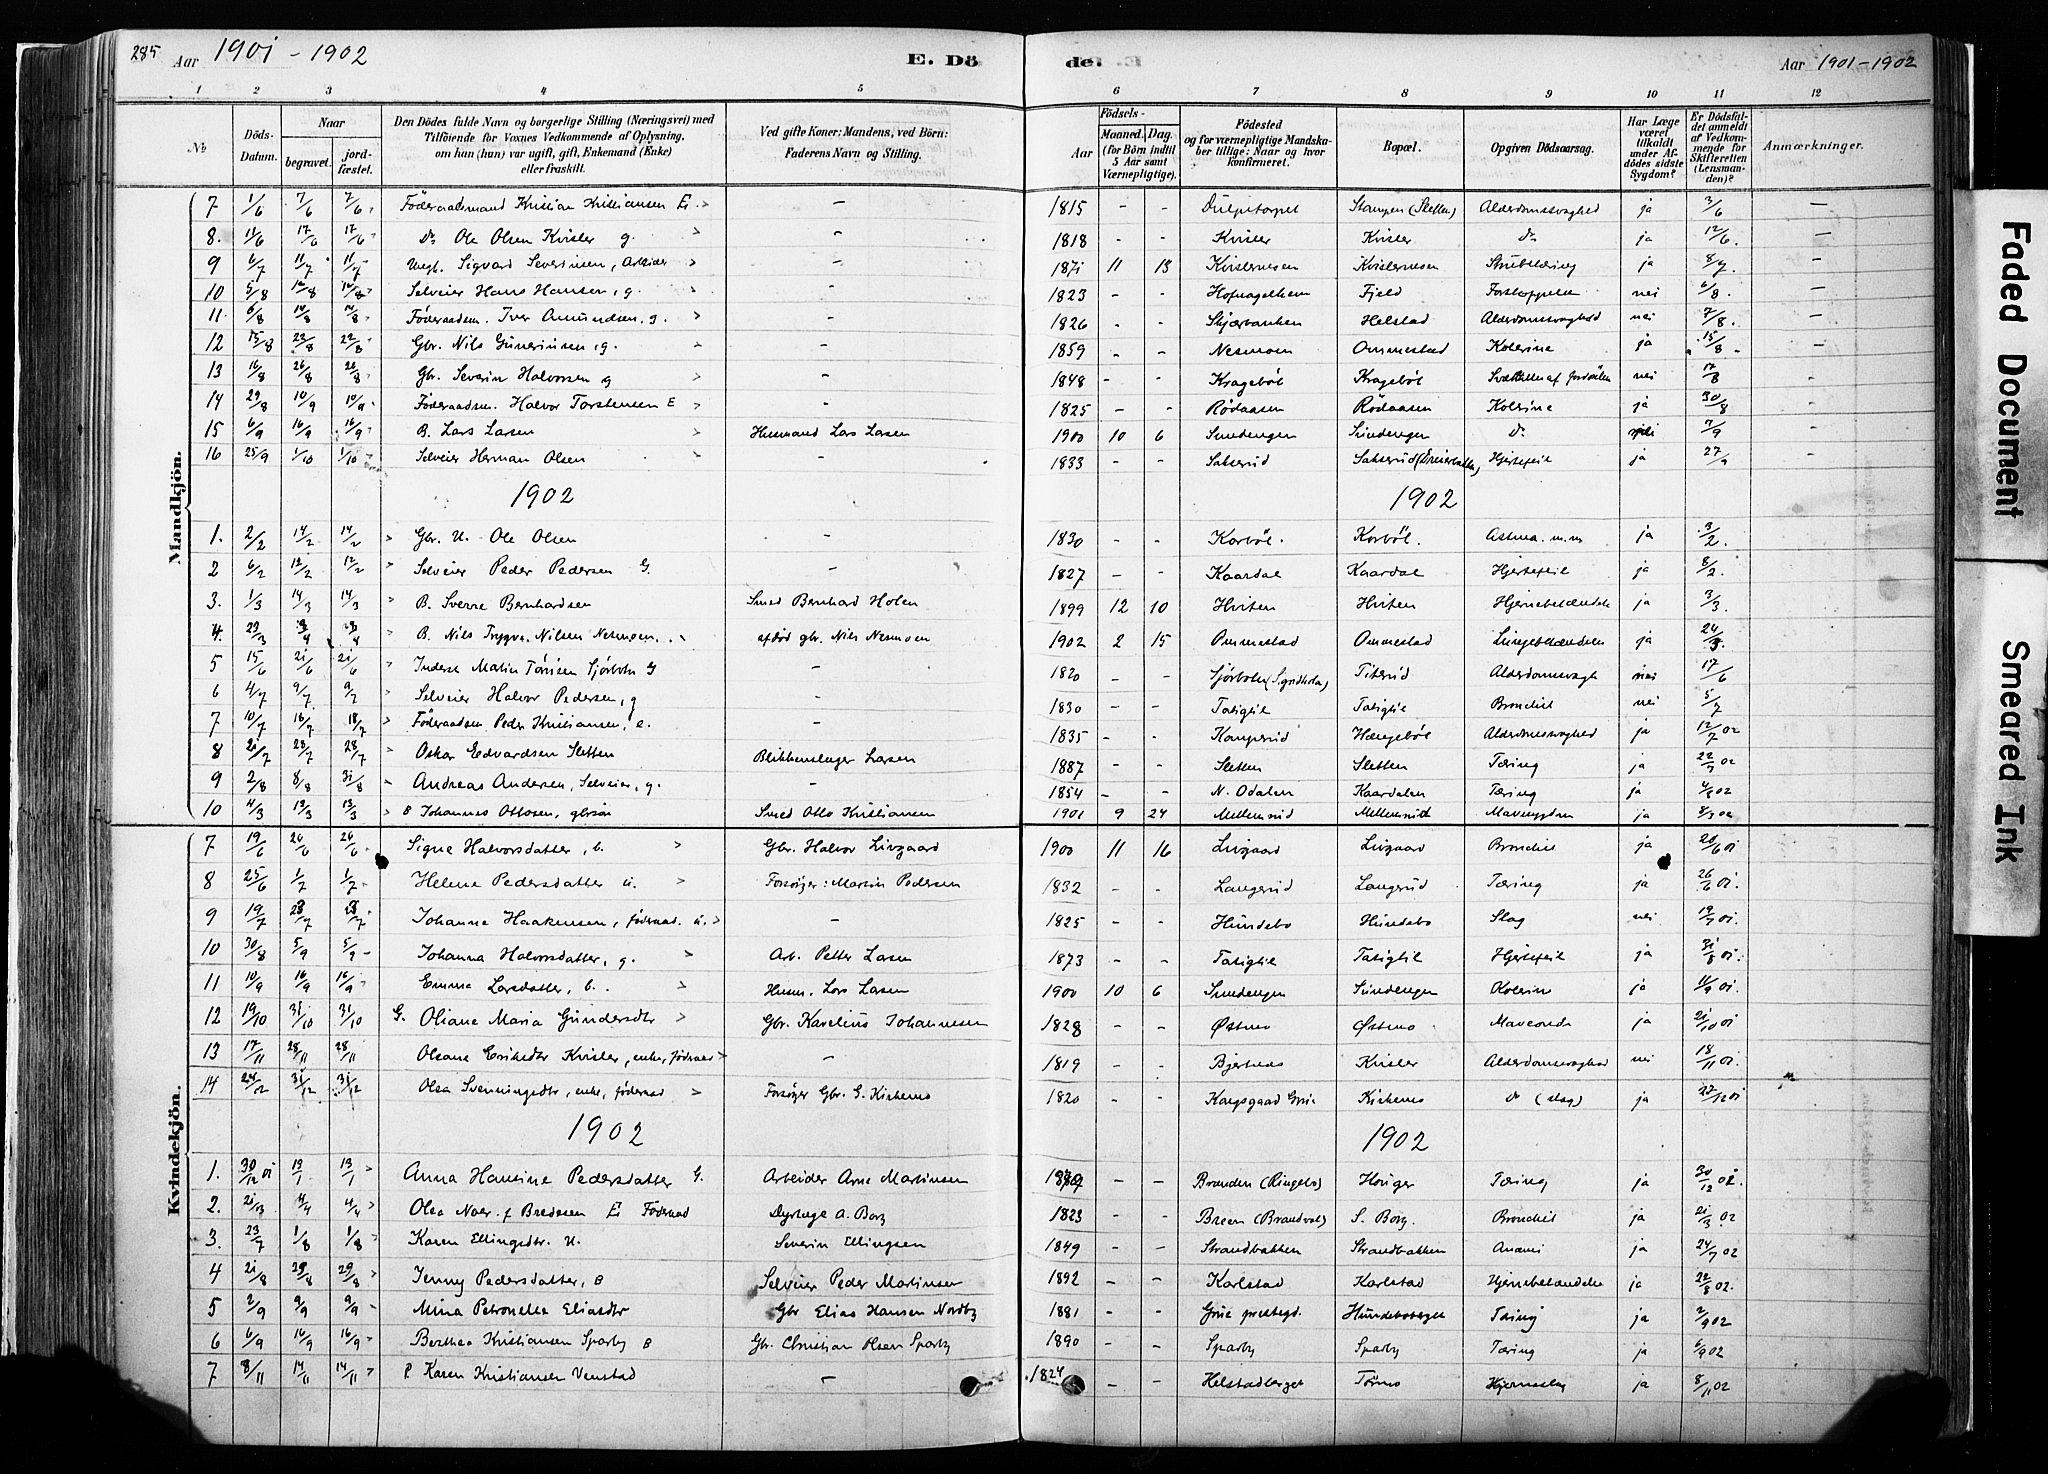 285 Aar 1901 - 1902 E. Dö de. Aar 1901-1902
1 2 3 4 5 6 7 8 9 10 11 12
No Döds-Datum. Naar begravet. jordfæstet. Den Dödes fulde Navn og borgerlige Stilling (Næringsvei) med Tilföiende for Voxnes Vedkommende af Oplysning, om han (hun) var ugift, gift, Enkemand (Enke) eller fraskilt. Ved gifte Koner: Mandens, ved Börn: Faderens Navn og Stilling. Födsels- Aar Maaned. Dag. (for Börn indtil 5 Aar samt Værnepligtige). Födested og for værnepligtige Mandskaber tillige: Naar og hvor Konfirmeret. Bopæl. Opgiven Dödsaarsag. Har Læge været tilkaldt under Afdödes sidste Sygdom? Er Dödsfaldet anmeldt af Vedkommende for Skifteretten (Lensmanden)? Anmærkninger.
Mandkjön.
7 1/6 7/6 7/6 Föderaadsmand Kristian Kristiansen E. - 1815 - - Stampen (Sletten) Alderdomssvaghed ja 3/6 -
8. 11/6 17/6 17/6 Do Ole Olsen Kvisler g. - 1818 - - Kvisler Kvisler Do ja 12/6. -
9 6/7 11/7 11/7 Ungk. Sigvard Severinsen, Arbeider - 1871 11 13 Kvislernesen Kvislernesen Strubetæring ja 8/7 -
10 5/8 Selveier Hans Hansen, g. - 1823 - - Fjeld Forstoppelse nei 6/8. -
11. 6/8 Föderaadsm. Iver Amundsen, g. - 1826 - - Skjærbanken Helstad Alderdomssvaghed nei 7/8. -
12 15/8 22/8 22/8 Gbr. Nils Guneriusen, g. - 1859 - - Nesmoen Ommestad Kolerine ja 15/8 -
13 16/8 26/8 26/8 Gbr. Severin Halvorsen g - 1848 - - Kragebøl Kragebøl nei 17/8 -
14 29/8 10/9 10/9 Föderaadsm. Halvor Torstensen E - 1825 - - Rødaasen Rødaasen Kolerine ja 30/8 -
15 6/9 16/9 16/9 B. Lars Larsen Husmand Lars Larsen 1900 10 6 Smedengen Smedengen Do nei 7/9 -
16 25/9 1/10 1/10 Selveier Herman Olsen - 1833 - - Sakserud Sakserud Hjertefeil ja 27/9 -
1902 1902
1. 2/2 14/2 14/2 Gbr. U. Ole Olsen - 1830 - - Korbøl. Korbøl. Astma. m.m ja 3/2.
2 6/2 12/2 12/2 Selveier Peder Pedersen G. - 1827 - - Kaardal Kaardal Hjertefeil ja 8/2.
3. 1/3 14/3 14/3 B. Sverre Bernhardsen Smed Bernhard Holen 1899 12 10 Hviten Hviten Hjernebetændels ja 3/3.
4. B. Nils Trygve Nilsen Nesmoen. afdød gbr. Nils Nesmoen 1902 2 15 Ommestad Ommestad Lungebetændelse ja 24/3.
5 15/6 21/6 21/6 Inderst Matis Tørrisen Sjørbolm G - 1820 - - Titerud Alderdomssvagh nei 17/6
6 4/7 9/7 9/7 Selveier Halvor Pedersen, g - 1830 - - Tasiglie Tasiglie Bronchit nei 5/7
7 10/7 16/7 18/7 Föderaadsm Peder Kristiansen, e. - 1835 - - Kamperud Hængebøl Alderdomssvaghed ja 12/7 02
8 21/7 28/7 28/7 Oskar Edvardsen Sletten Blikkenslager Larsen 1887 - - Sletten Sletten Tæring ja 22/7 02
9 2/8 8/8 31/8 Andreas Andersen, Selveier, g. - 1854 - - N. Odalen Kaardalen Tæring ja 4/8 02
10 4/3 13/3 13/3 B Johannes Ottosen, gbrsøn Smed Otto Kristiansen 1901 9 24 Mellemrud Mellemrud Mavesygdom ja 8/3 02
Kvindekjön.
7 19/6 26/6 26/6 Signe Halvorsdatter, b. Gbr. Halvor Livgaard 1900 11 16 Livgaard Livgaard Bronchit ja 20/6 01
8 25/6 1/7 1/7 Helene Pedersdatter u. Forsørger: Martin Pedersen 1832 - - Langerud Langerud Tæring ja 26/6 01.
9 19/7 23/7 23/7 Johanne Haakensen, föderaad. u. - 1825 - - Hundebo Hundebo Slag nei 19/7 01.
10 30/8 5/9 5/9 Johanna Halvorsdatter, g. Arb. Petter Larsen 1873 - - Tasiglie Tasiglie Hjertefeil ja 31/8 01.
11 10/9 16/9 16/9 Emma Larsdatter, b. Husm. Lars Larsen 1900 10 6 Smedengen Smedengen Kolerine ja 11/9 01.
12 19/10 31/10 31/10 G. Oliane Maria Gundersdtr Gbr. Karelius Johannesen 1828 - - Østmo Østmo Maveonde ja 21/10 01
13 17/11 28/11 28/11 Oleane Eriksdtr Kvisler, enke, föderaad - 1819 - - Kvisler Alderdomssvaghed nei 18/11 01.
14 24/12 31/12 31/12 Olea Svenningsdtr, enke, föderaad Forsörger Gbr. G. Kirkemo 1820 - - Kongsgaard Grue Kirkemo do (slag) ja 27/12 01
1902 1902
1. 30/12 01 13/1 13/1 Anna Hansine Pedersdatter G. Arbeider Arne Martinsen - - Branden (Ringebo) Høiger Tæring ja 30/12
2. 4/4 4/4 Olea Noer f Bredesen E Föderaad Dyrlæge A. Borg 1823 - - Breen (Brandval) S. Borg. Bronchit ja 21/3 02
3. 23/7 1/8 1/8 Karen Ellingsdtr. U. Severin Ellingsen 1849 - - Strandbakken Strandbakken Anæmi ja 24/7 02
4 21/8 29/8 29/8 Jenny Pedersdatter, B Selveier Peder Martinsen 1892 - - Karlstad Karlstad Hjernebetændelse ja 22/8 02.
5 2/9 9/9 9/9 Mina Petronelle Eliasdtr Gbr Elias Hansen Nordby 1881 - - Grue prestegd. Hundeboberget Tæring ja 2/9 02
6 6/9 16/9 16/9 Berthea Kristiansen Sparby B Gbr. Christian Olsen Sparby 1890 - - Sparby Sparby Tæring ja 6/9 02
7 8/11 14/11 14/11 Karen Kristiansen Venstad - 1824 - - Helstadberget Tørmo Hjerneslag ja 8/11 02
Faded Document
Smeared Ink